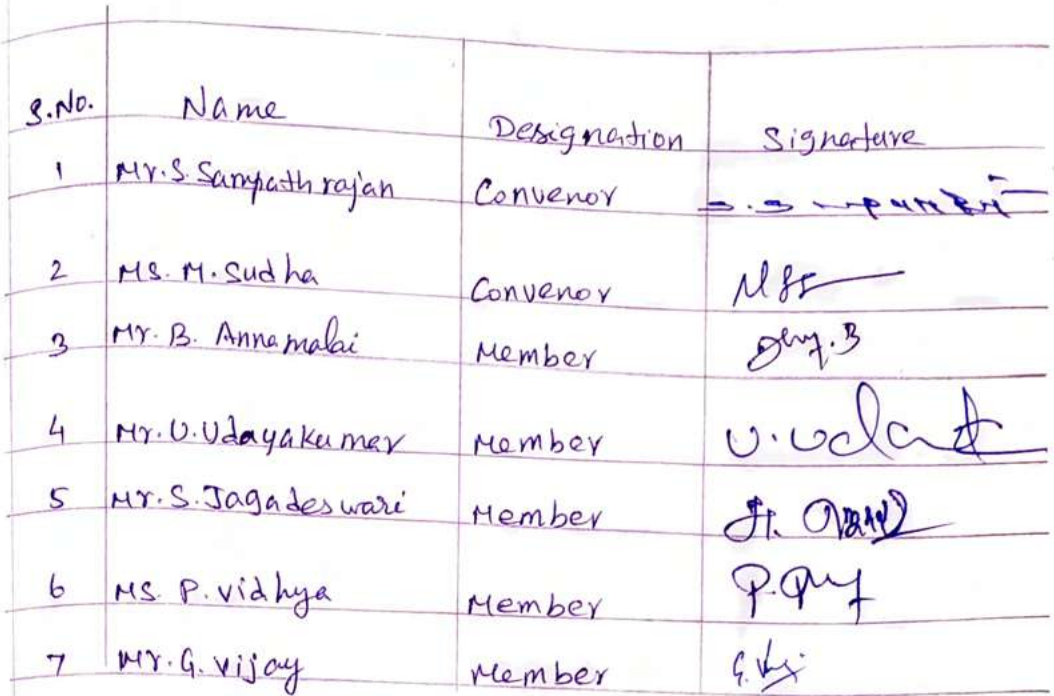 S.No. Name Designation Signature
1 Mr. S. Sampath rajan Convenor
2 Ms. M. Sudha Convenor
3 Mr. B. Annamalai Member
4 Mr. U. Udayakumar Member U. Uda
5 Mr. S. Jagadeswari Member
6 Ms. P. Vidhya Member
7 Mr. G. Vijay Member